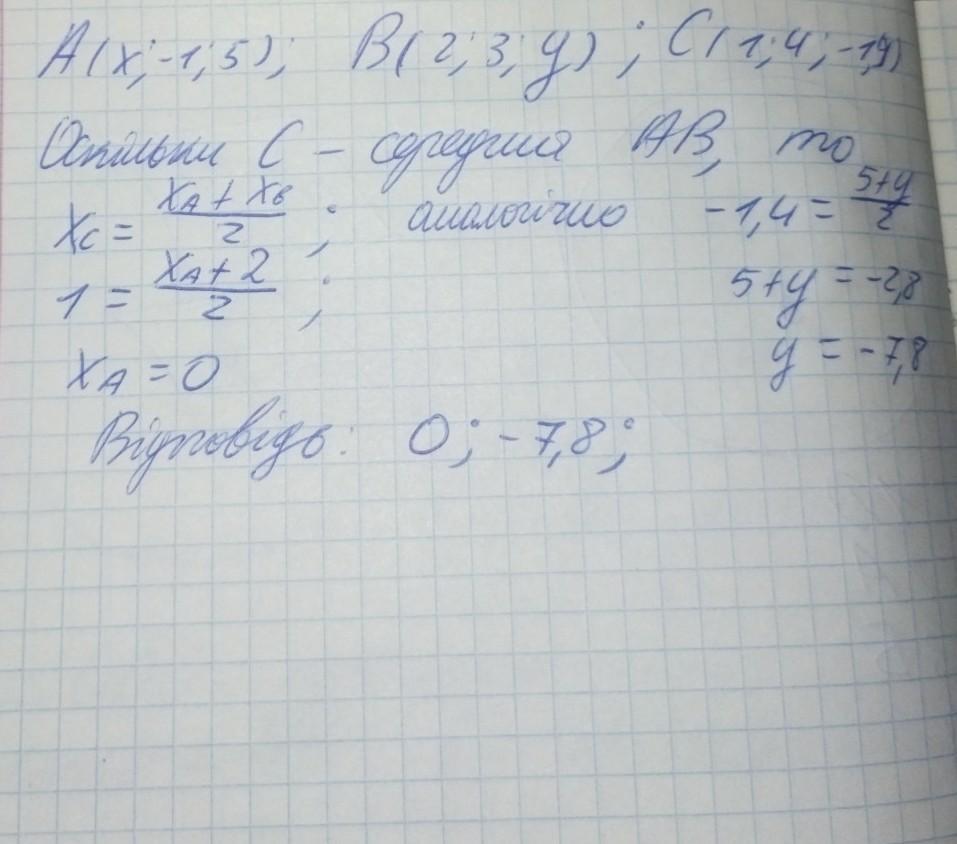 A(x; -1; 5); B(2; 3; y); C(1; 4; -1,4)
Оскільки C – середина AB, то
x_C = (x_A + x_B)/2 ; аналогічно -1,4 = (5+y)/2
1 = (x_A + 2)/2 ; 5+y = -2,8
x_A = 0 y = -7,8
Відповідь: 0; -7,8;